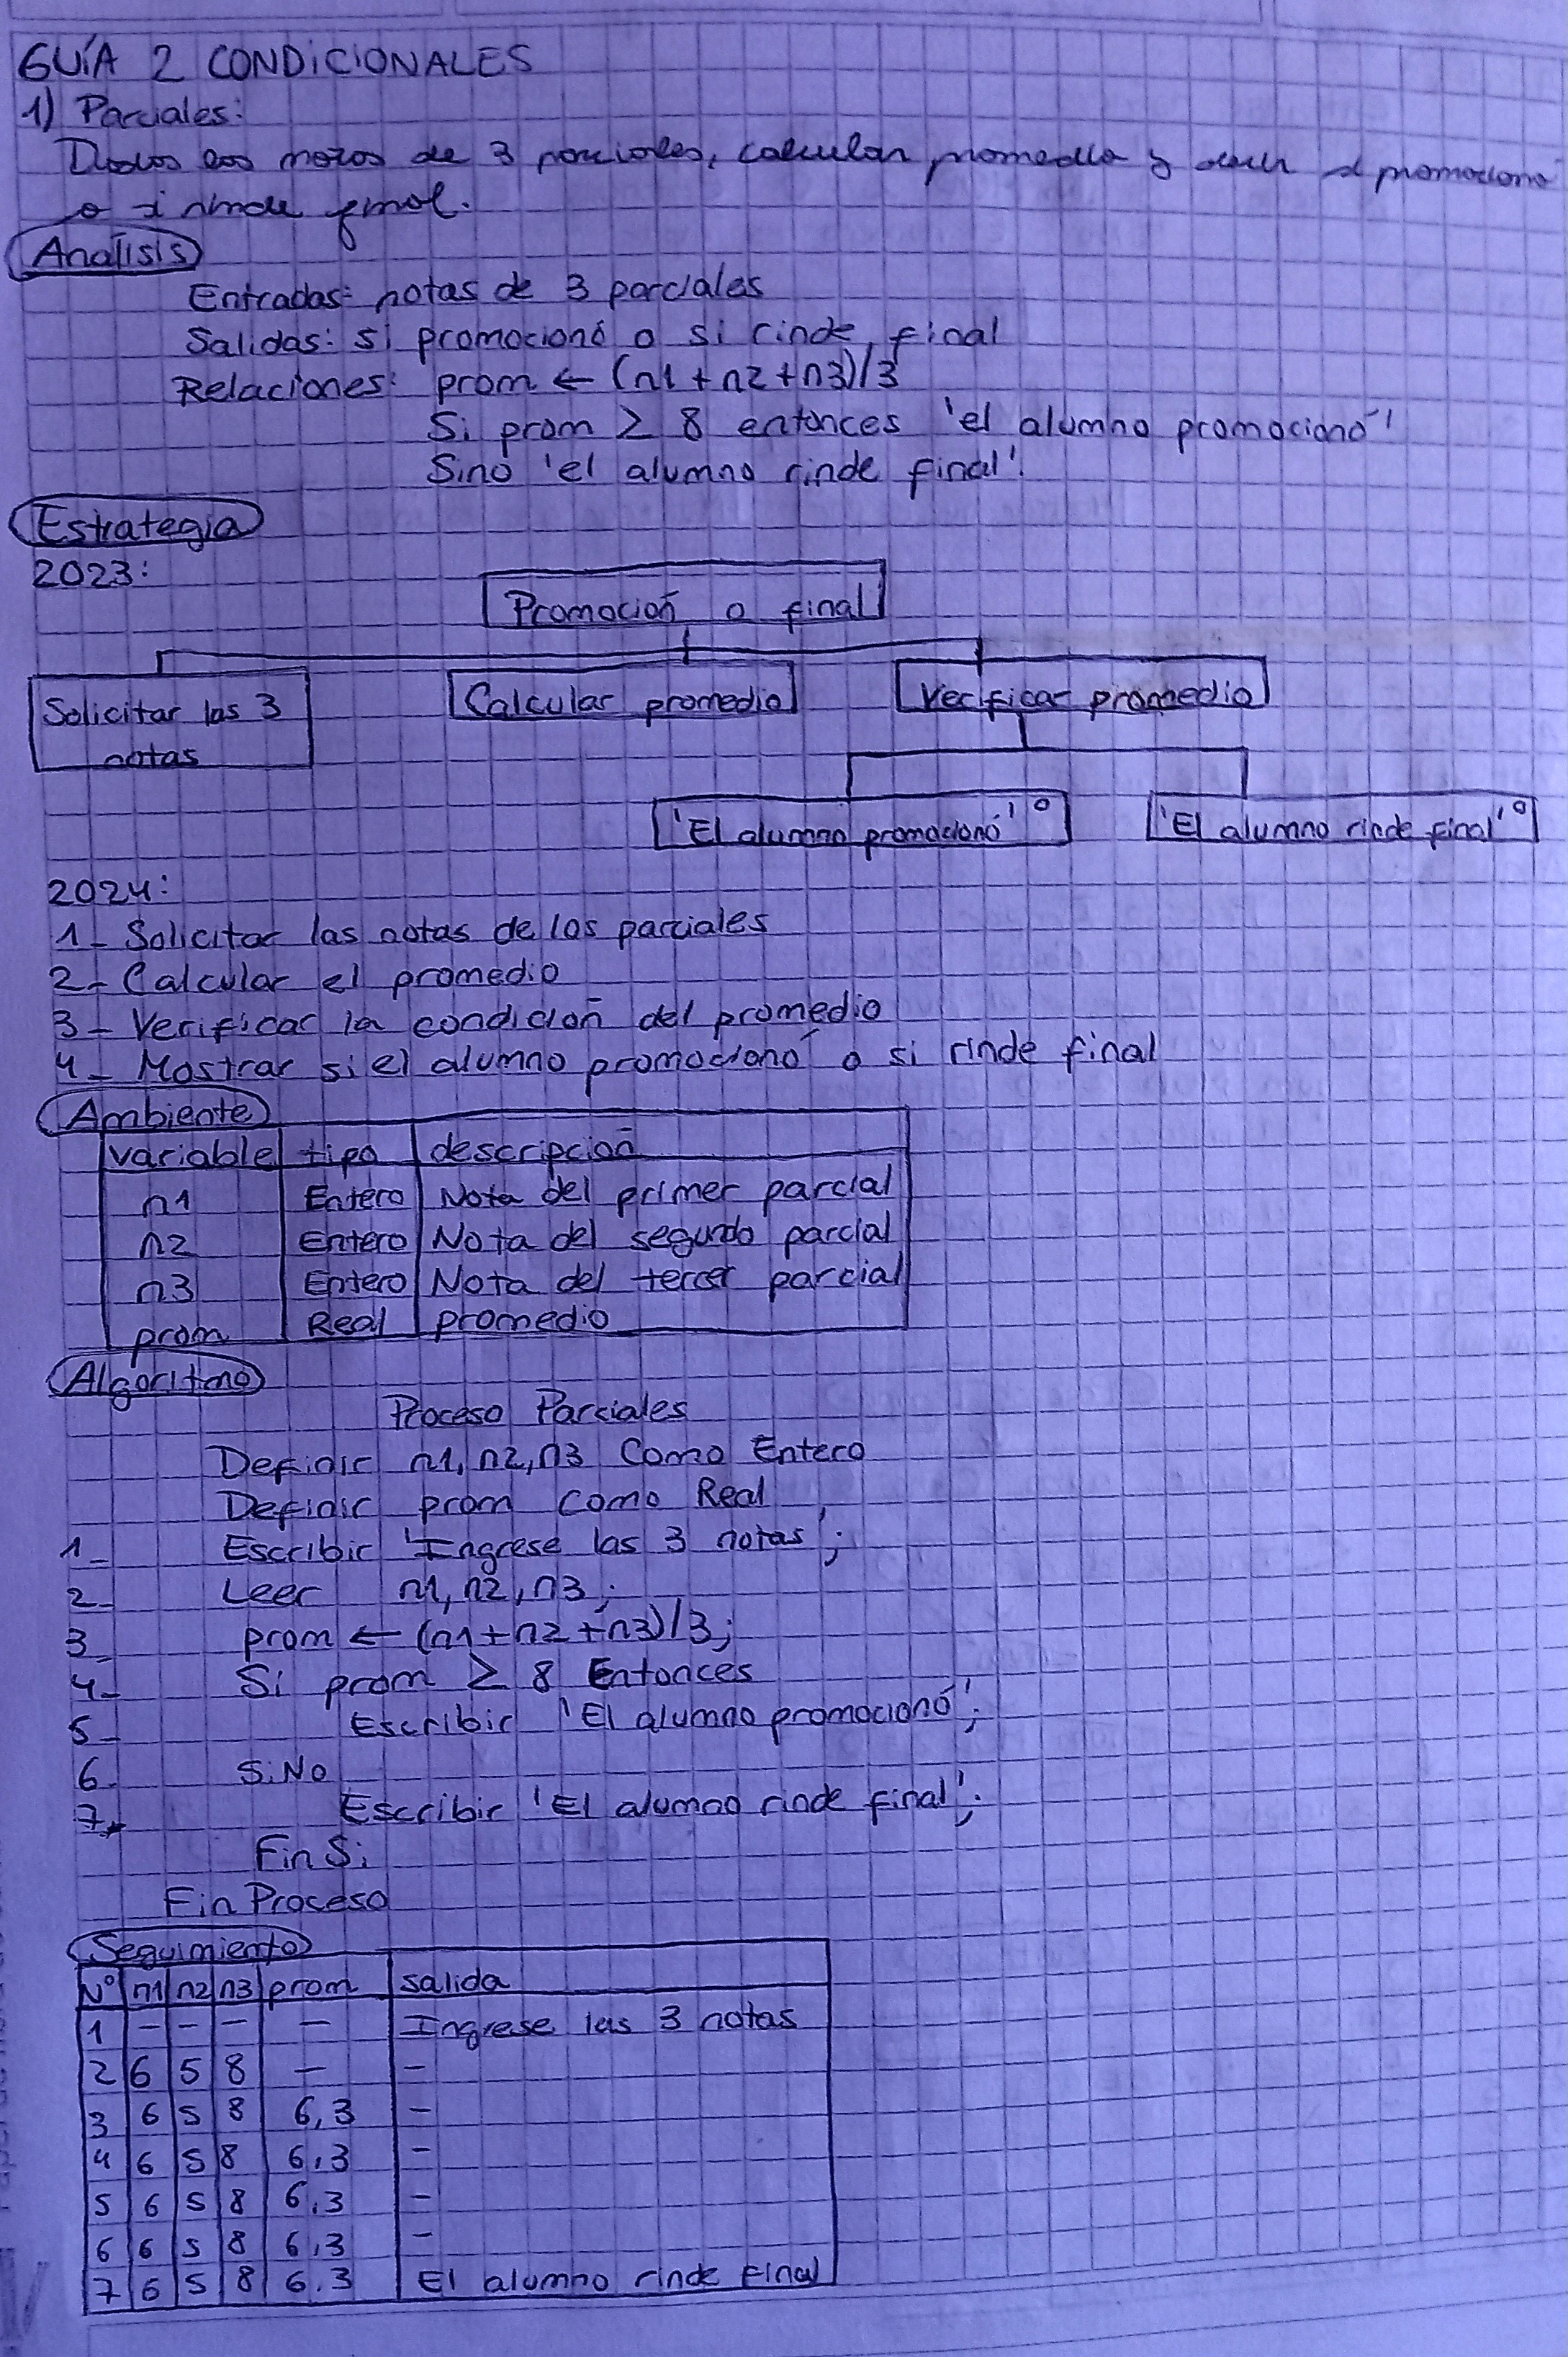 GUÍA 2 CONDICIONALES
1) Parciales:
Dados las notas de 3 parciales, calcular promedio y decir si promociono
o si rinde final.
Analisis
Entradas: notas de 3 parciales
Salidas: si promocionó o si rinde final
Relaciones: prom ← (n1+n2+n3)/3
Si prom ≥ 8 entonces 'el alumno promocionó'
Sino 'el alumno rinde final'.
Estrategia
2023:
Promoción o final
Solicitar las 3 notas
Calcular promedio
Verificar promedio
'El alumno promocionó' °
'El alumno rinde final' °
2024:
1- Solicitar las notas de los parciales
2- Calcular el promedio
3- Verificar la condición del promedio
4- Mostrar si el alumno promocionó o si rinde final
Ambiente
variable tipo descripción
n1 Entero Nota del primer parcial
n2 Entero Nota del segundo parcial
n3 Entero Nota del tercer parcial
prom Real promedio
Algoritmo
Proceso Parciales
Definir n1, n2, n3 Como Entero
Definir prom como Real
1- Escribir 'Ingrese las 3 notas';
2- Leer n1, n2, n3;
3- prom ← (n1+n2+n3)/3;
4- Si prom ≥ 8 Entonces
5- Escribir 'El alumno promocionó';
6- SiNo
7- Escribir 'El alumno rinde final';
Fin Si
Fin Proceso
Seguimiento
N° n1 n2 n3 prom salida
1 – – – – Ingrese las 3 notas
2 6 5 8 – –
3 6 5 8 6,3 –
4 6 5 8 6,3 –
5 6 5 8 6,3 –
6 6 5 8 6,3 –
7 6 5 8 6,3 El alumno rinde final